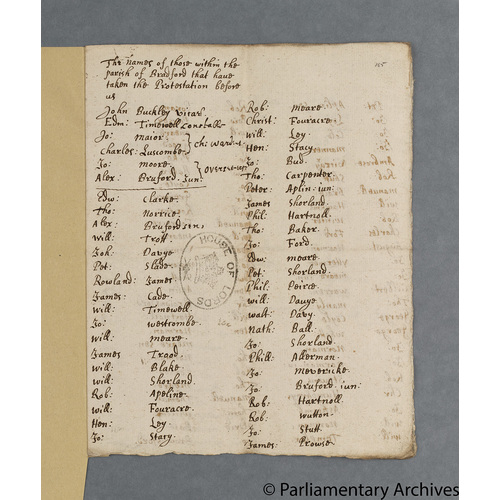 The names of those within the
parish of Bradford that have
taken the Protestation before
us
John Buckley vicar
Edm: Timewell Constable
Jo: Maior
Charles: Luscombe
Ch: ward
Jo: moore
Alex: Bruford Jun:
Edw: Clarke
Tho: Norrice
Alex: Bruford sen:
Will: Trott
Joh: Davye
Pet: Slade
Rowland: James
James: Cade
Will: Timewell
Jo: westcombe
will: meare
James Trood
Will: Blake
will: Shorland
Rob: Apeline
will: Fouracre
Hen: Ley
Jo: Stacy
Rob: meare
Christ: Fouracre
will: Ley
Hen: Stacy
Jo: Bud
Tho: Carpenter
Peter: Aplin iun:
James Shorland
Phil: Hartnoll
Tho: Baker
Jo: Ford
Edw: meare
Pet: Shorland
Phil: Peirce
will: Davye
walt: Davy
Nath: Ball
Jo: Shorland
Phill: Akerman
Jo: Mevericke
Jo: Bruford iun:
Rob: Hartnoll
Rob: wutton
Jo: Stutt
James: Prowse
HOUSE OF LORDS
© Parliamentary Archives